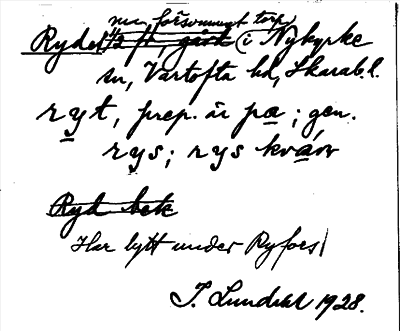 nu försvunnet torp
Ryde 1/2 fr, gård i Nykyrke
sn, Vartofta hd, Skarab. l.
ryt, prep. är pa; gen.
rys; rys kvarn
Ryd bek
Har lytt under Ryfors
J. Lundahl 1928.